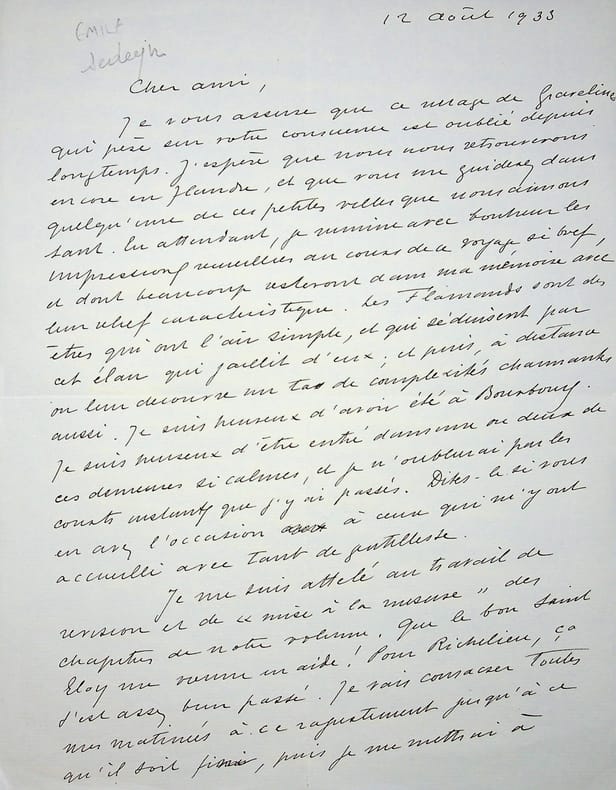 12 août 1933
EMILE
Cher ami,
Je vous assure que ce nuage de Gravelines
qui pèse sur votre conscience est oublié depuis
longtemps. J'espère que nous nous retrouverons
encore en Flandre, et que vous me guiderez dans
quelqu'une de ces petites villes que nous aimons
tant. En attendant, je rumine avec bonheur les
impressions recueillies au cours de ce voyage si bref,
et dont beaucoup resteront dans ma mémoire avec
leur relief caractéristique. Les Flamands sont des
êtres qui ont l'air simple, et qui séduisent par
cet élan qui jaillit d'eux ; et puis, à distance
on leur découvre un tas de complexités charmantes
aussi. Je suis heureux d'avoir été à Bourbourg.
Je suis heureux d'être entré dans une ou deux de
ces demeures si calmes, et je n'oublierai pas les
courts instants que j'y ai passés. Dites-le si vous
en avez l'occasion à ceux qui m'y ont
accueilli avec tant de gentillesse.
Je me suis attelé au travail de
revision et de « mise à la mesure » des
chapitres de notre volume. Que le bon Saint
Eloy me vienne en aide ! Pour Richelieu, ça
s'est assez bien passé. Je vais consacrer toutes
mes matinées à ce rajustement jusqu'à ce
qu'il soit fini, puis je me mettrai à